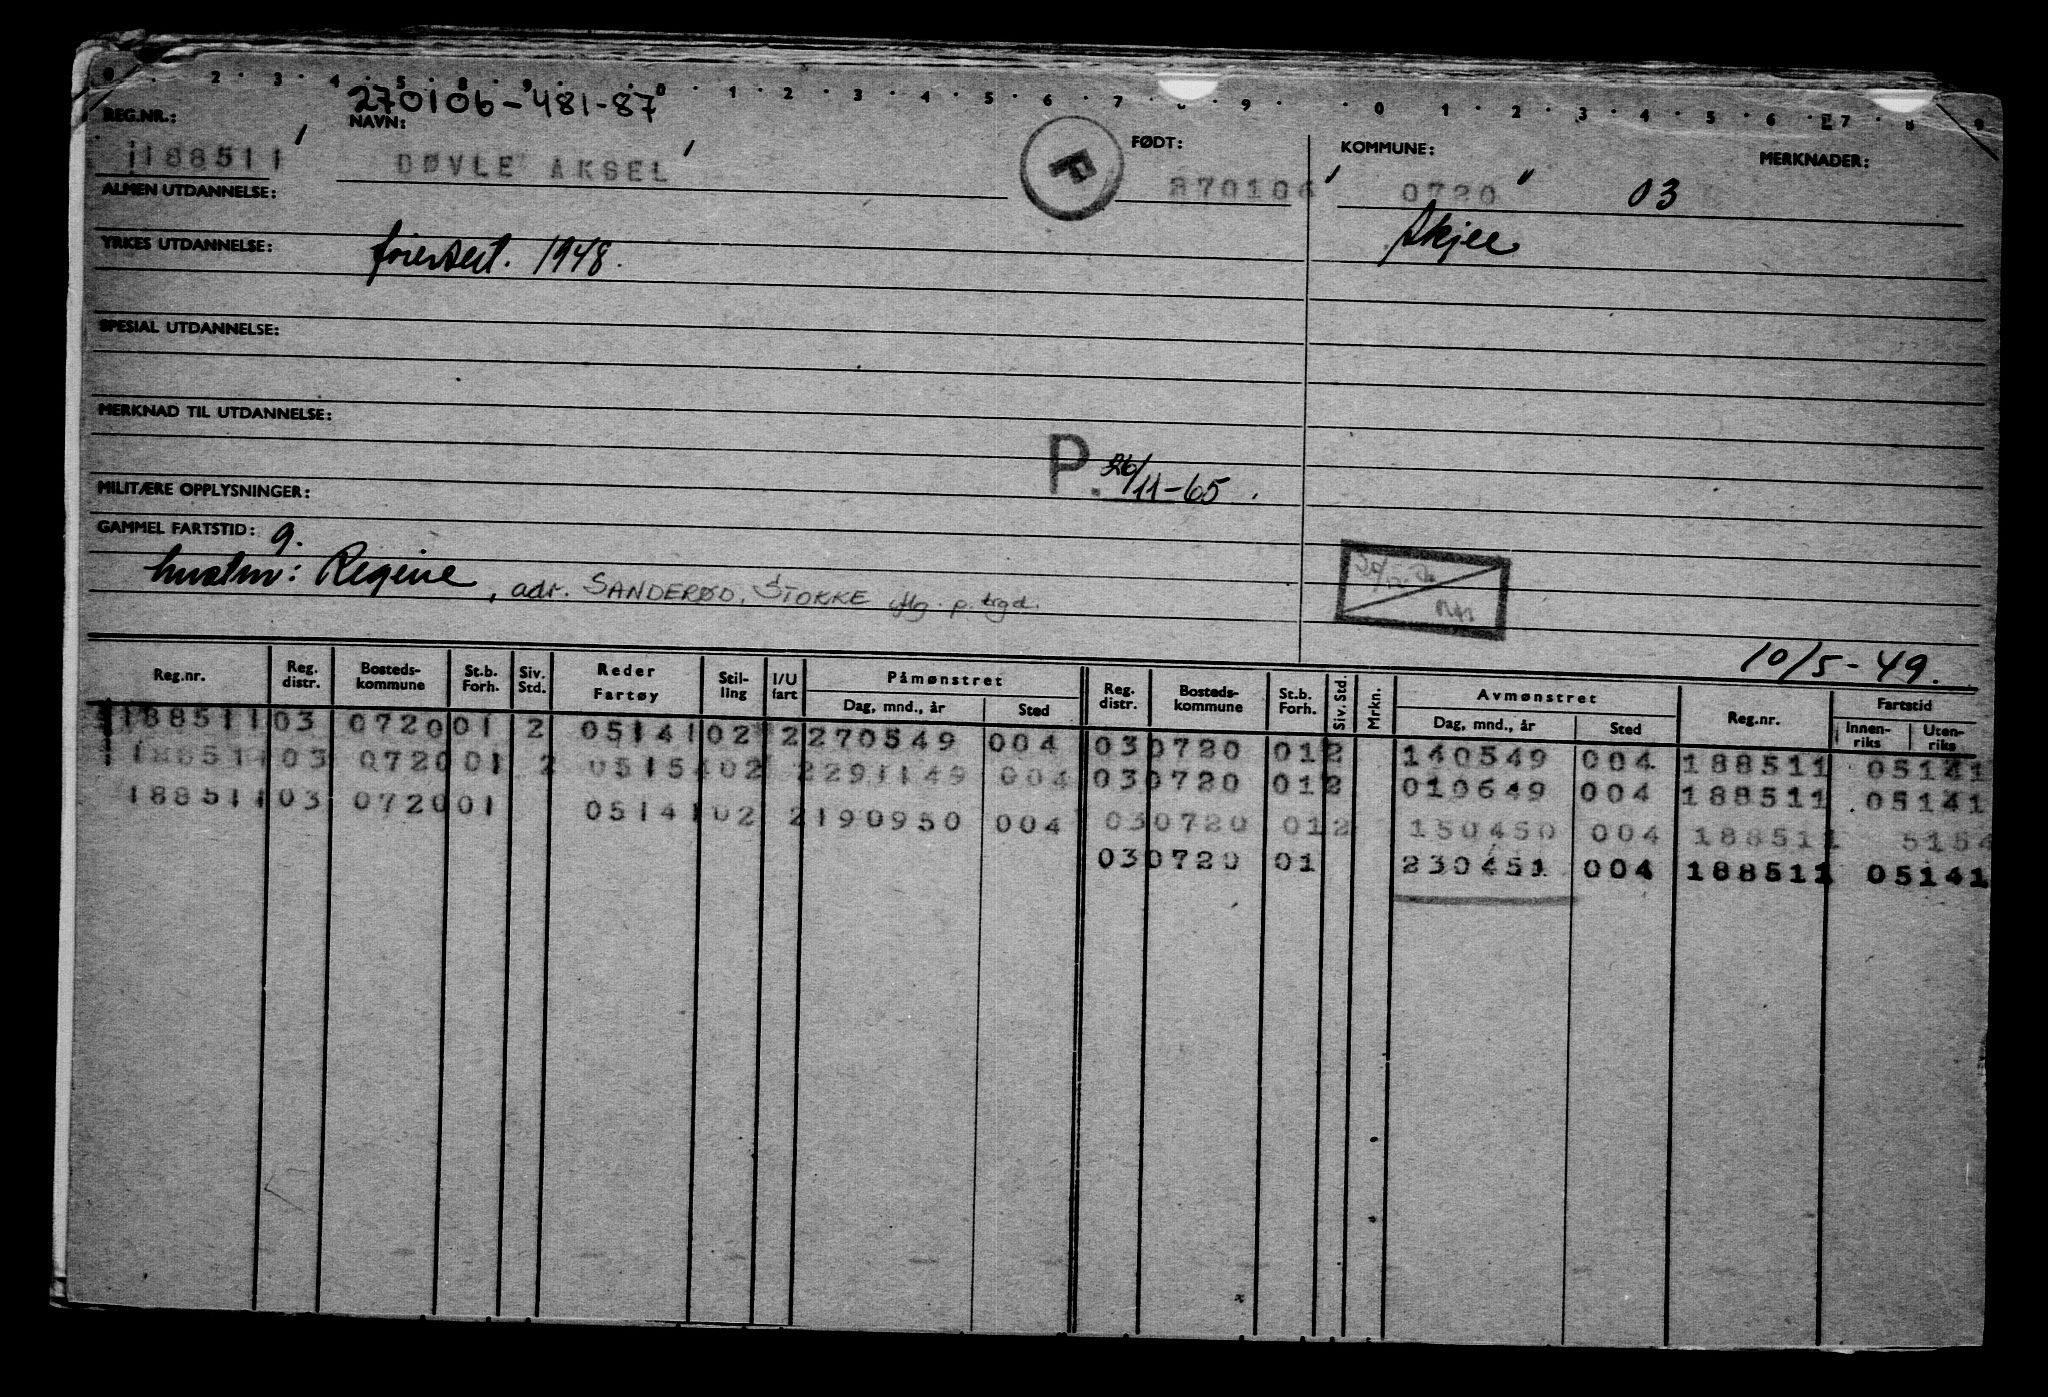 0 · 2 · 3 · 4 · 5 · 8 · 9 · 0 · 1 · 2 · 3 · 4 · 5 · 6 · 7 · 8 · 9 · 0 · 1 · 2 · 3 · 4 · 5 · 6 · E7 · 8 · 9
270106-481-87
REG.NR.: NAVN: FØDT: KOMMUNE: MERKNADER:
188511 DØVLE AKSEL P 270106 0720 03
ALMEN UTDANNELSE: Skjee
YRKES UTDANNELSE: 1948.
SPESIAL UTDANNELSE:
MERKNAD TIL UTDANNELSE:
P. 26/11-65.
MILITÆRE OPPLYSNINGER:
GAMMEL FARTSTID: 9.
hustru: Regine, adr. SANDERØD, STOKKE iflg. p. trgd.
10/5-49.
Reg.nr. Reg. distr. Bosteds-kommune St.b. Forh. Siv. Std. Reder Fartøy Stil-ling I/U fart Påmønstret Dag, mnd., år Sted Reg. distr. Bosteds-kommune St.b. Forh. Siv. Std. Mrkn. Avmønstret Dag, mnd., år Sted Reg.nr. Fartstid Innen-riks Uten-riks
188511 03 0720 01 2 05141 02 2 270549 004 03 0720 01 2 140549 004 188511 05141
188511 03 0720 01 2 05154 02 2 291149 004 03 0720 01 2 010649 004 188511 05141
188511 03 0720 01 05141 02 2 190950 004 03 0720 01 2 150450 004 188511 5154
03 0720 01 230451 004 188511 05141